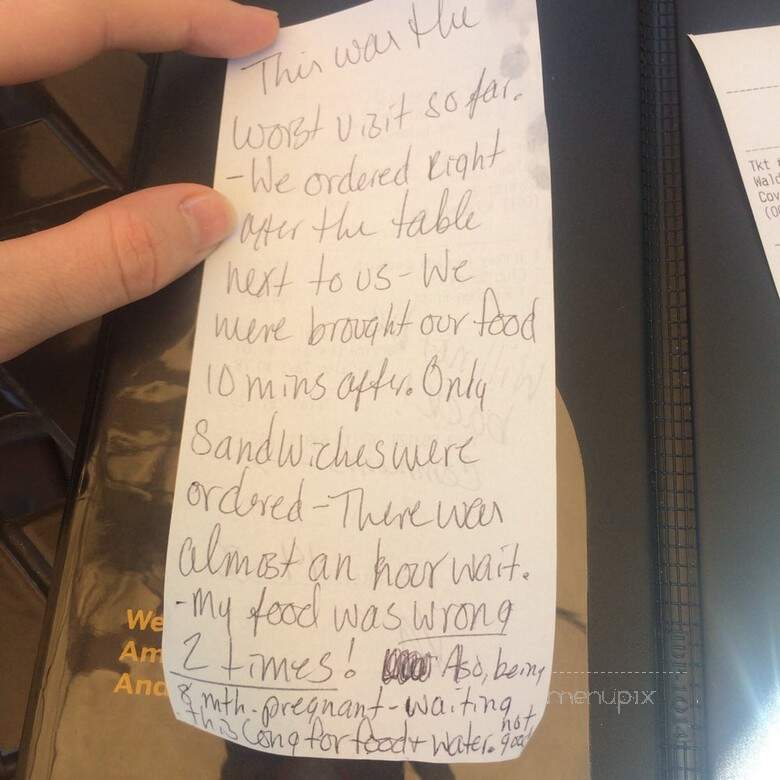 This was the
worst visit so far.
-We ordered right
after the table
next to us - We
were brought our food
10 mins after. Only
Sandwiches were
ordered - There was
almost an hour wait.
- My food was wrong
2 times! Also, being
8 mth. pregnant - waiting
this long for food + water. not
good
We
Am
And
menupix
Tkt
Wald
Cov